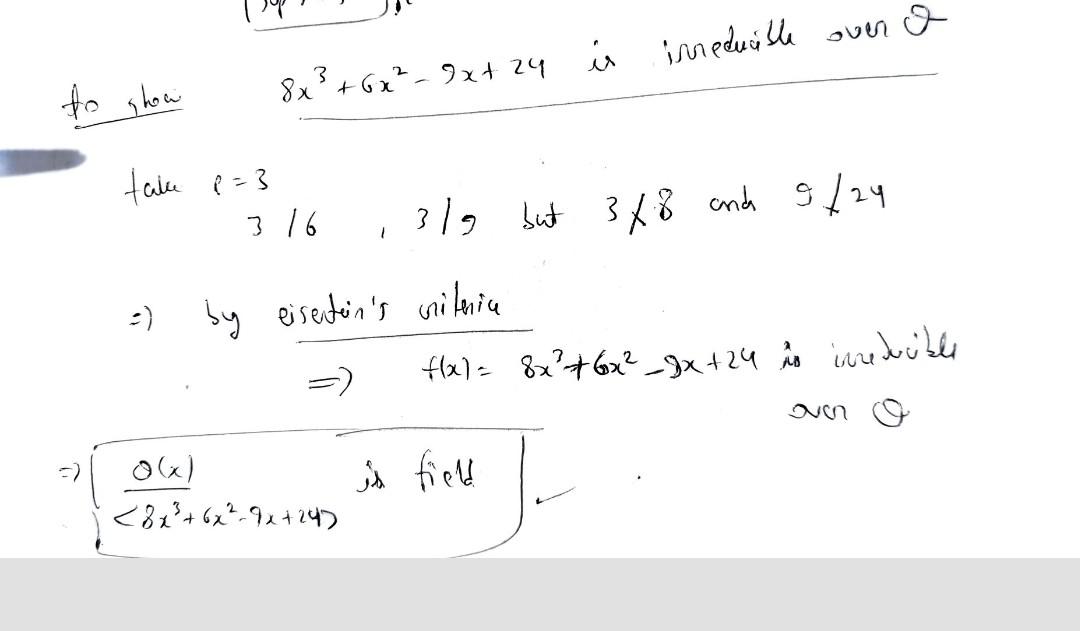 to show 8x³ + 6x² - 9x + 24 is irreducible over Q
take p = 3
3 / 6 , 3 / 9 but 3 ∤ 8 and 9 ∤ 24
=) by eisentein's criteria
=) f(x) = 8x³ + 6x² - 9x + 24 is irreducible
over Q
=) Q(x) is field
<8x³ + 6x² - 9x + 24>